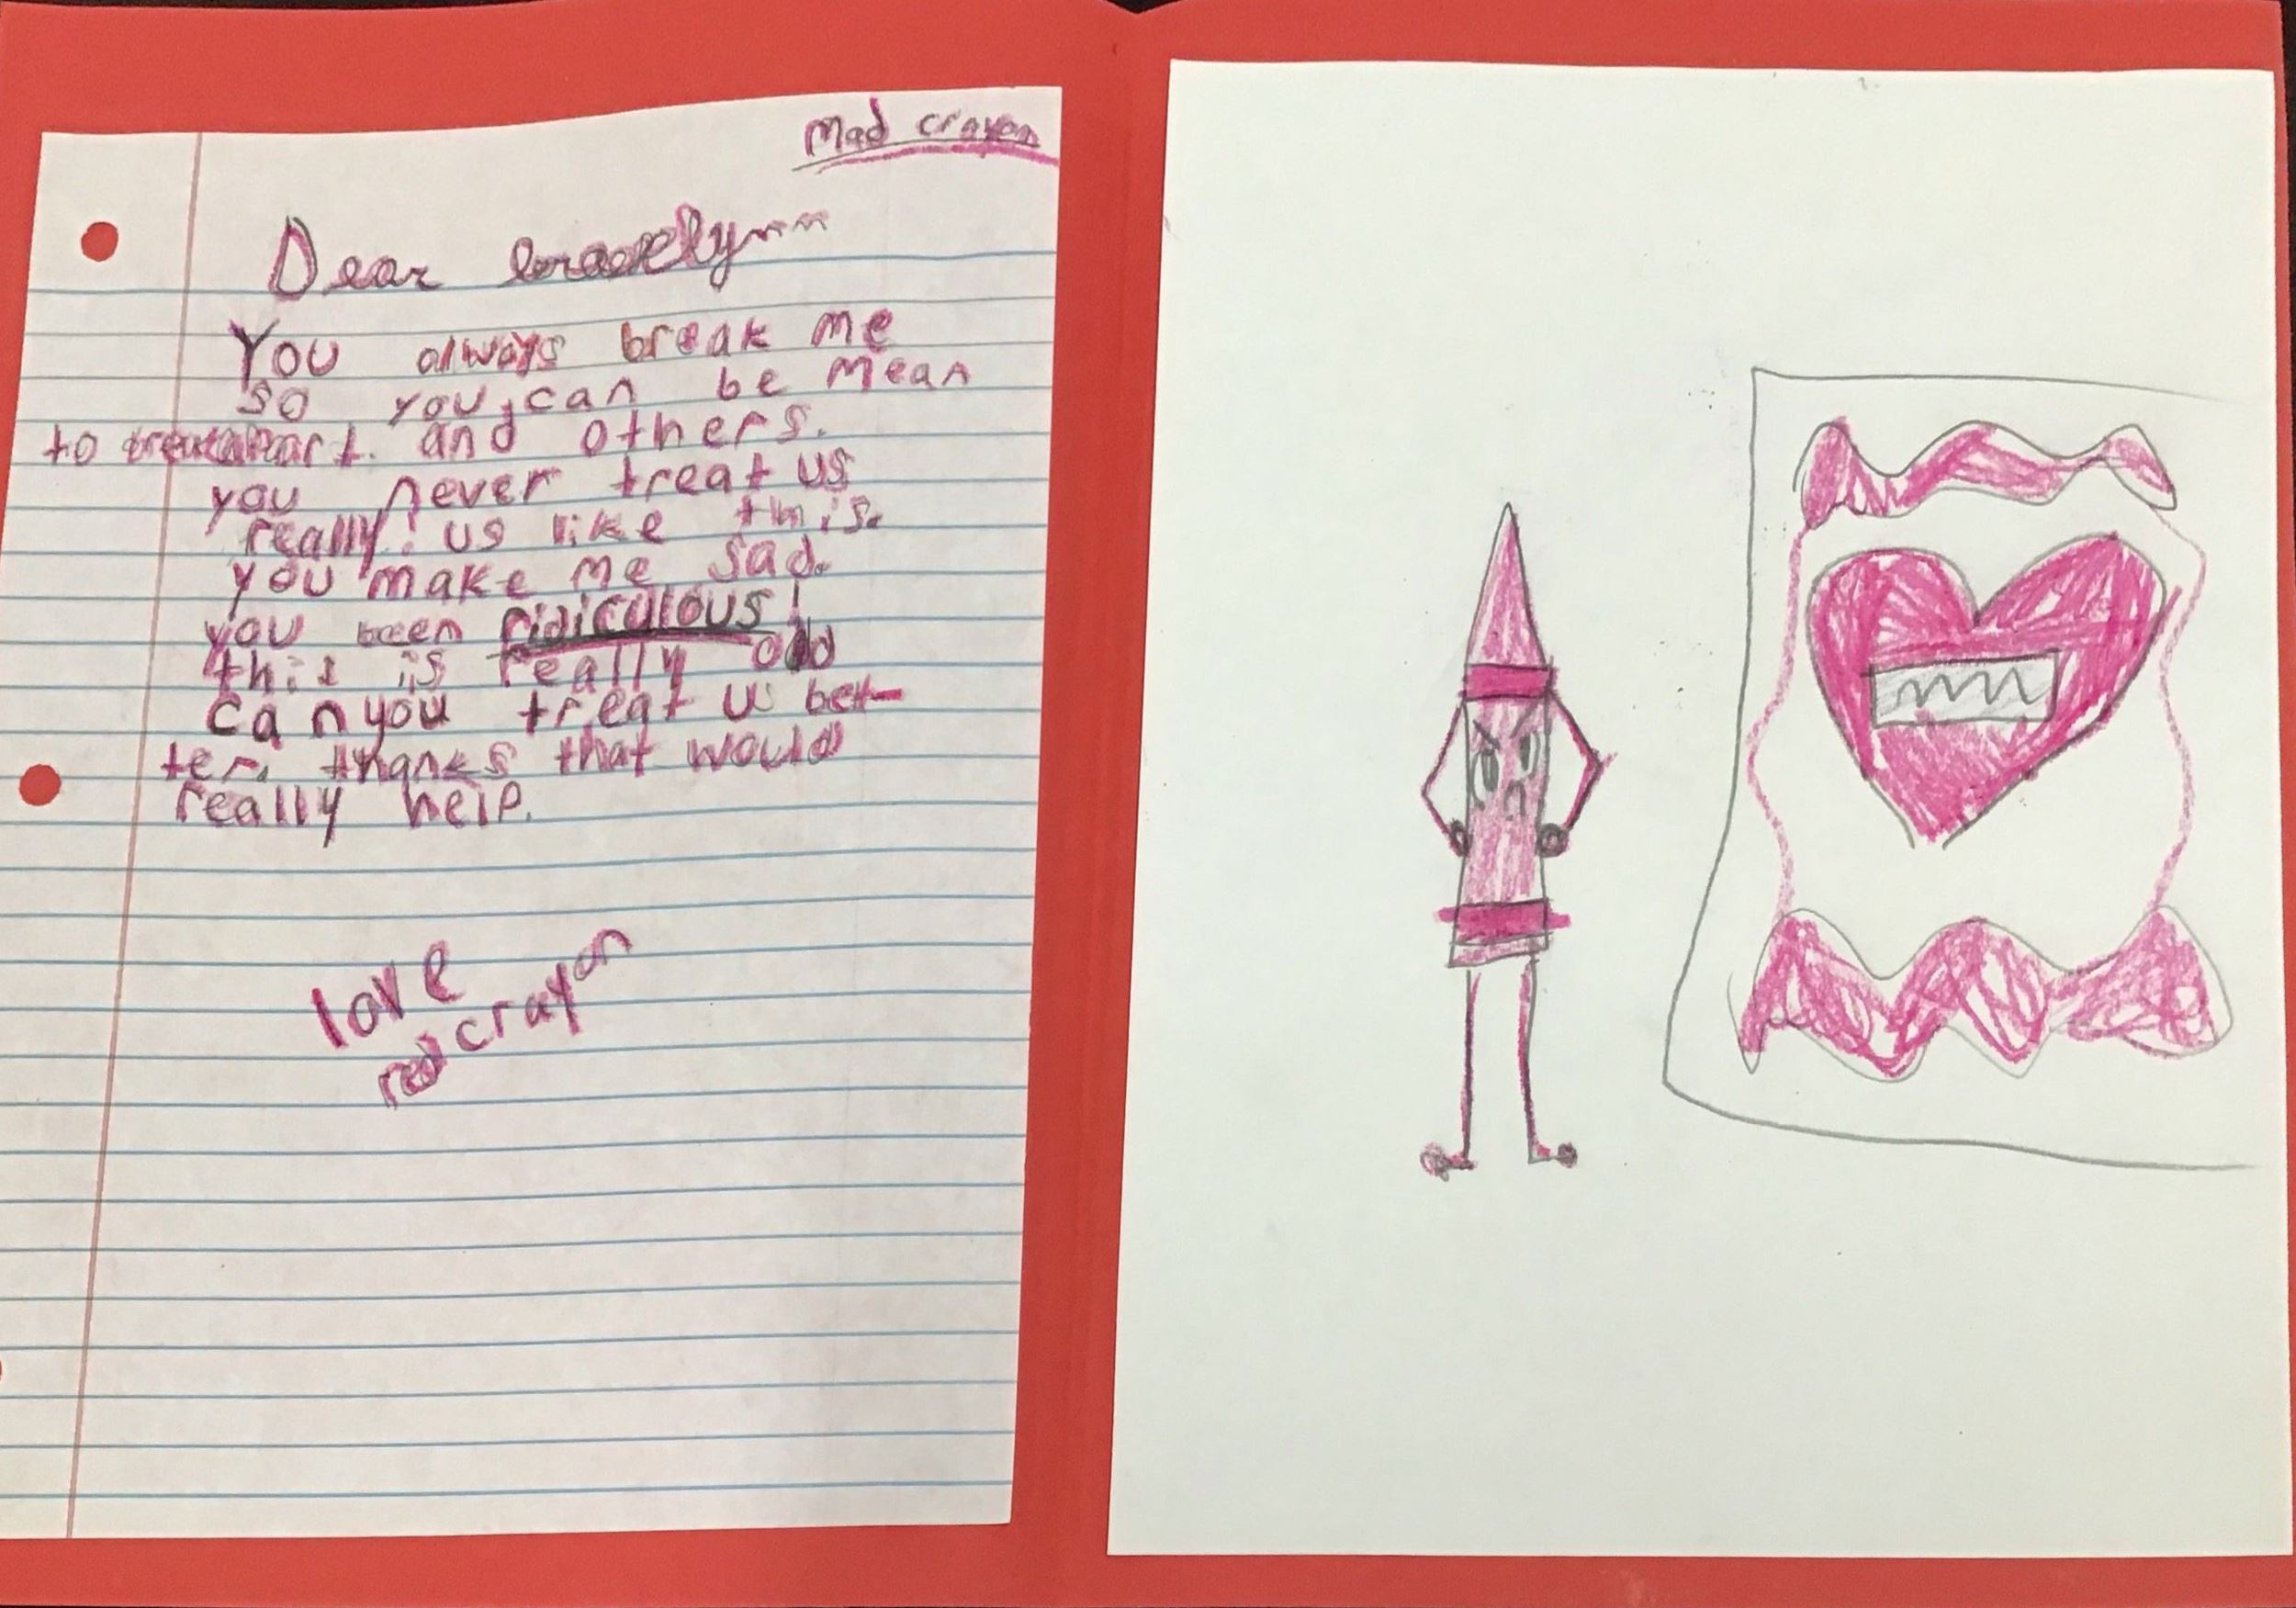 Mad crayon
Dear
You always break me
so you can be mean
to and others.
you never treat us
really! us like this.
you make me sad.
you been ridiculous!
this is really odd
can you treat us bet-
ter. thanks that would
really help.
love
red crayon